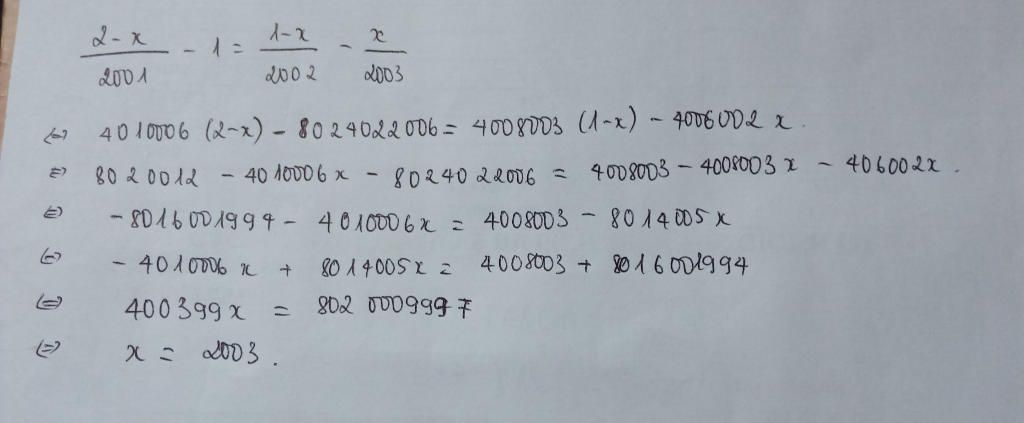 2-x/2001 - 1 = 1-x/2002 - x/2003
(=) 4010006 (2-x) - 8024022006 = 4008003 (1-x) - 4006002 x.
(=) 8020012 - 4010006x - 8024022006 = 4008003 - 4008003x - 406002x.
(=) -8016001994 - 4010006x = 4008003 - 8014005x
(=) -4010006x + 8014005x = 4008003 + 8016001994
(=) 400399x = 8020009997
(=) x = 2003.